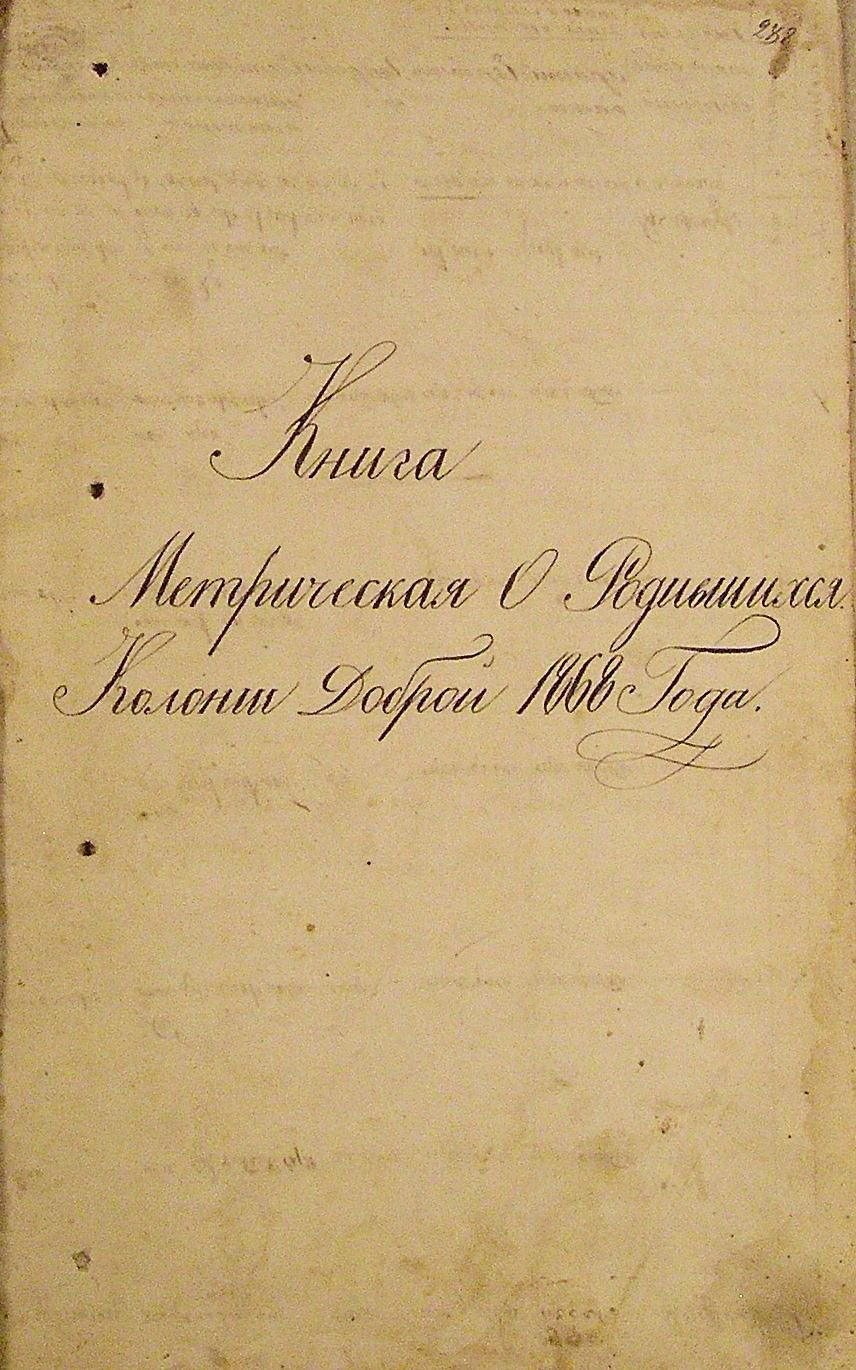 Книга
Метрическая О Родившихся
Колонии Доброй 1868 Года.